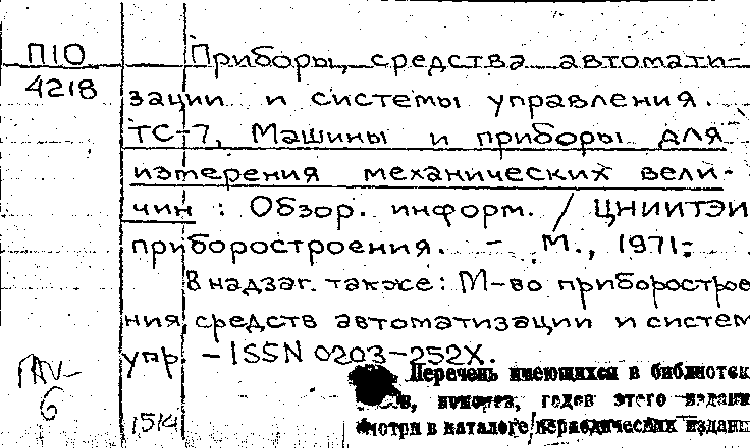 П10
4218
Приборы, средства автомати-
зации и системы управления.
ТС-7, Машины и приборы для
измерения механических вели-
чин : Обзор. информ. / ЦНИИТЭИ
приборостроения. - М., 1971-
В надзаг. также: М-во приборострое
ния, средств автоматизации и систем
упр. - ISSN 0203-252X.
Перечень имеющихся в библиотек
номеров, годов этого издани
смотри в каталоге периодических издани
6
1514